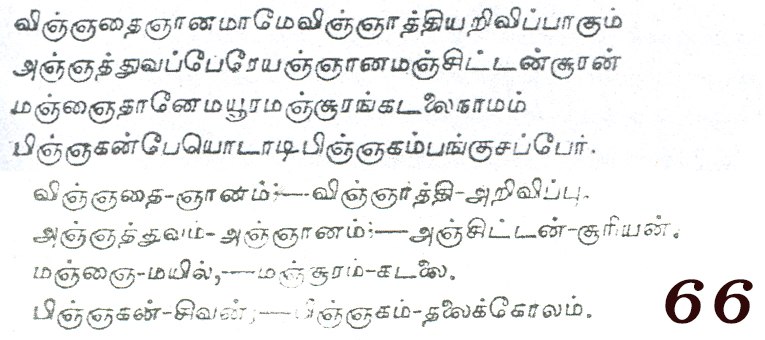 விஞ்ஞதைஞானமாமேவிஞ்ஞாத்தியறிவிப்பாகும்
அஞ்ஞத்துவப்பேரேயஞ்ஞானமஞ்சிட்டன்சூரன்
மஞ்ஞைதானேமயூரமஞ்சூரங்கடலைநாமம்
பிஞ்ஞகன்பேயொடாடிபிஞ்ஞகம்பங்குசப்பேர்.
விஞ்ஞதை-ஞானம்;—விஞ்ஞாத்தி-அறிவிப்பு.
அஞ்ஞத்துவம்-அஞ்ஞானம்;—அஞ்சிட்டன்-சூரியன்.
மஞ்ஞை-மயில்,—மஞ்சூரம்-கடலை.
பிஞ்ஞகன்-சிவன்;—பிஞ்ஞகம்-தலைக்கோலம்.
66